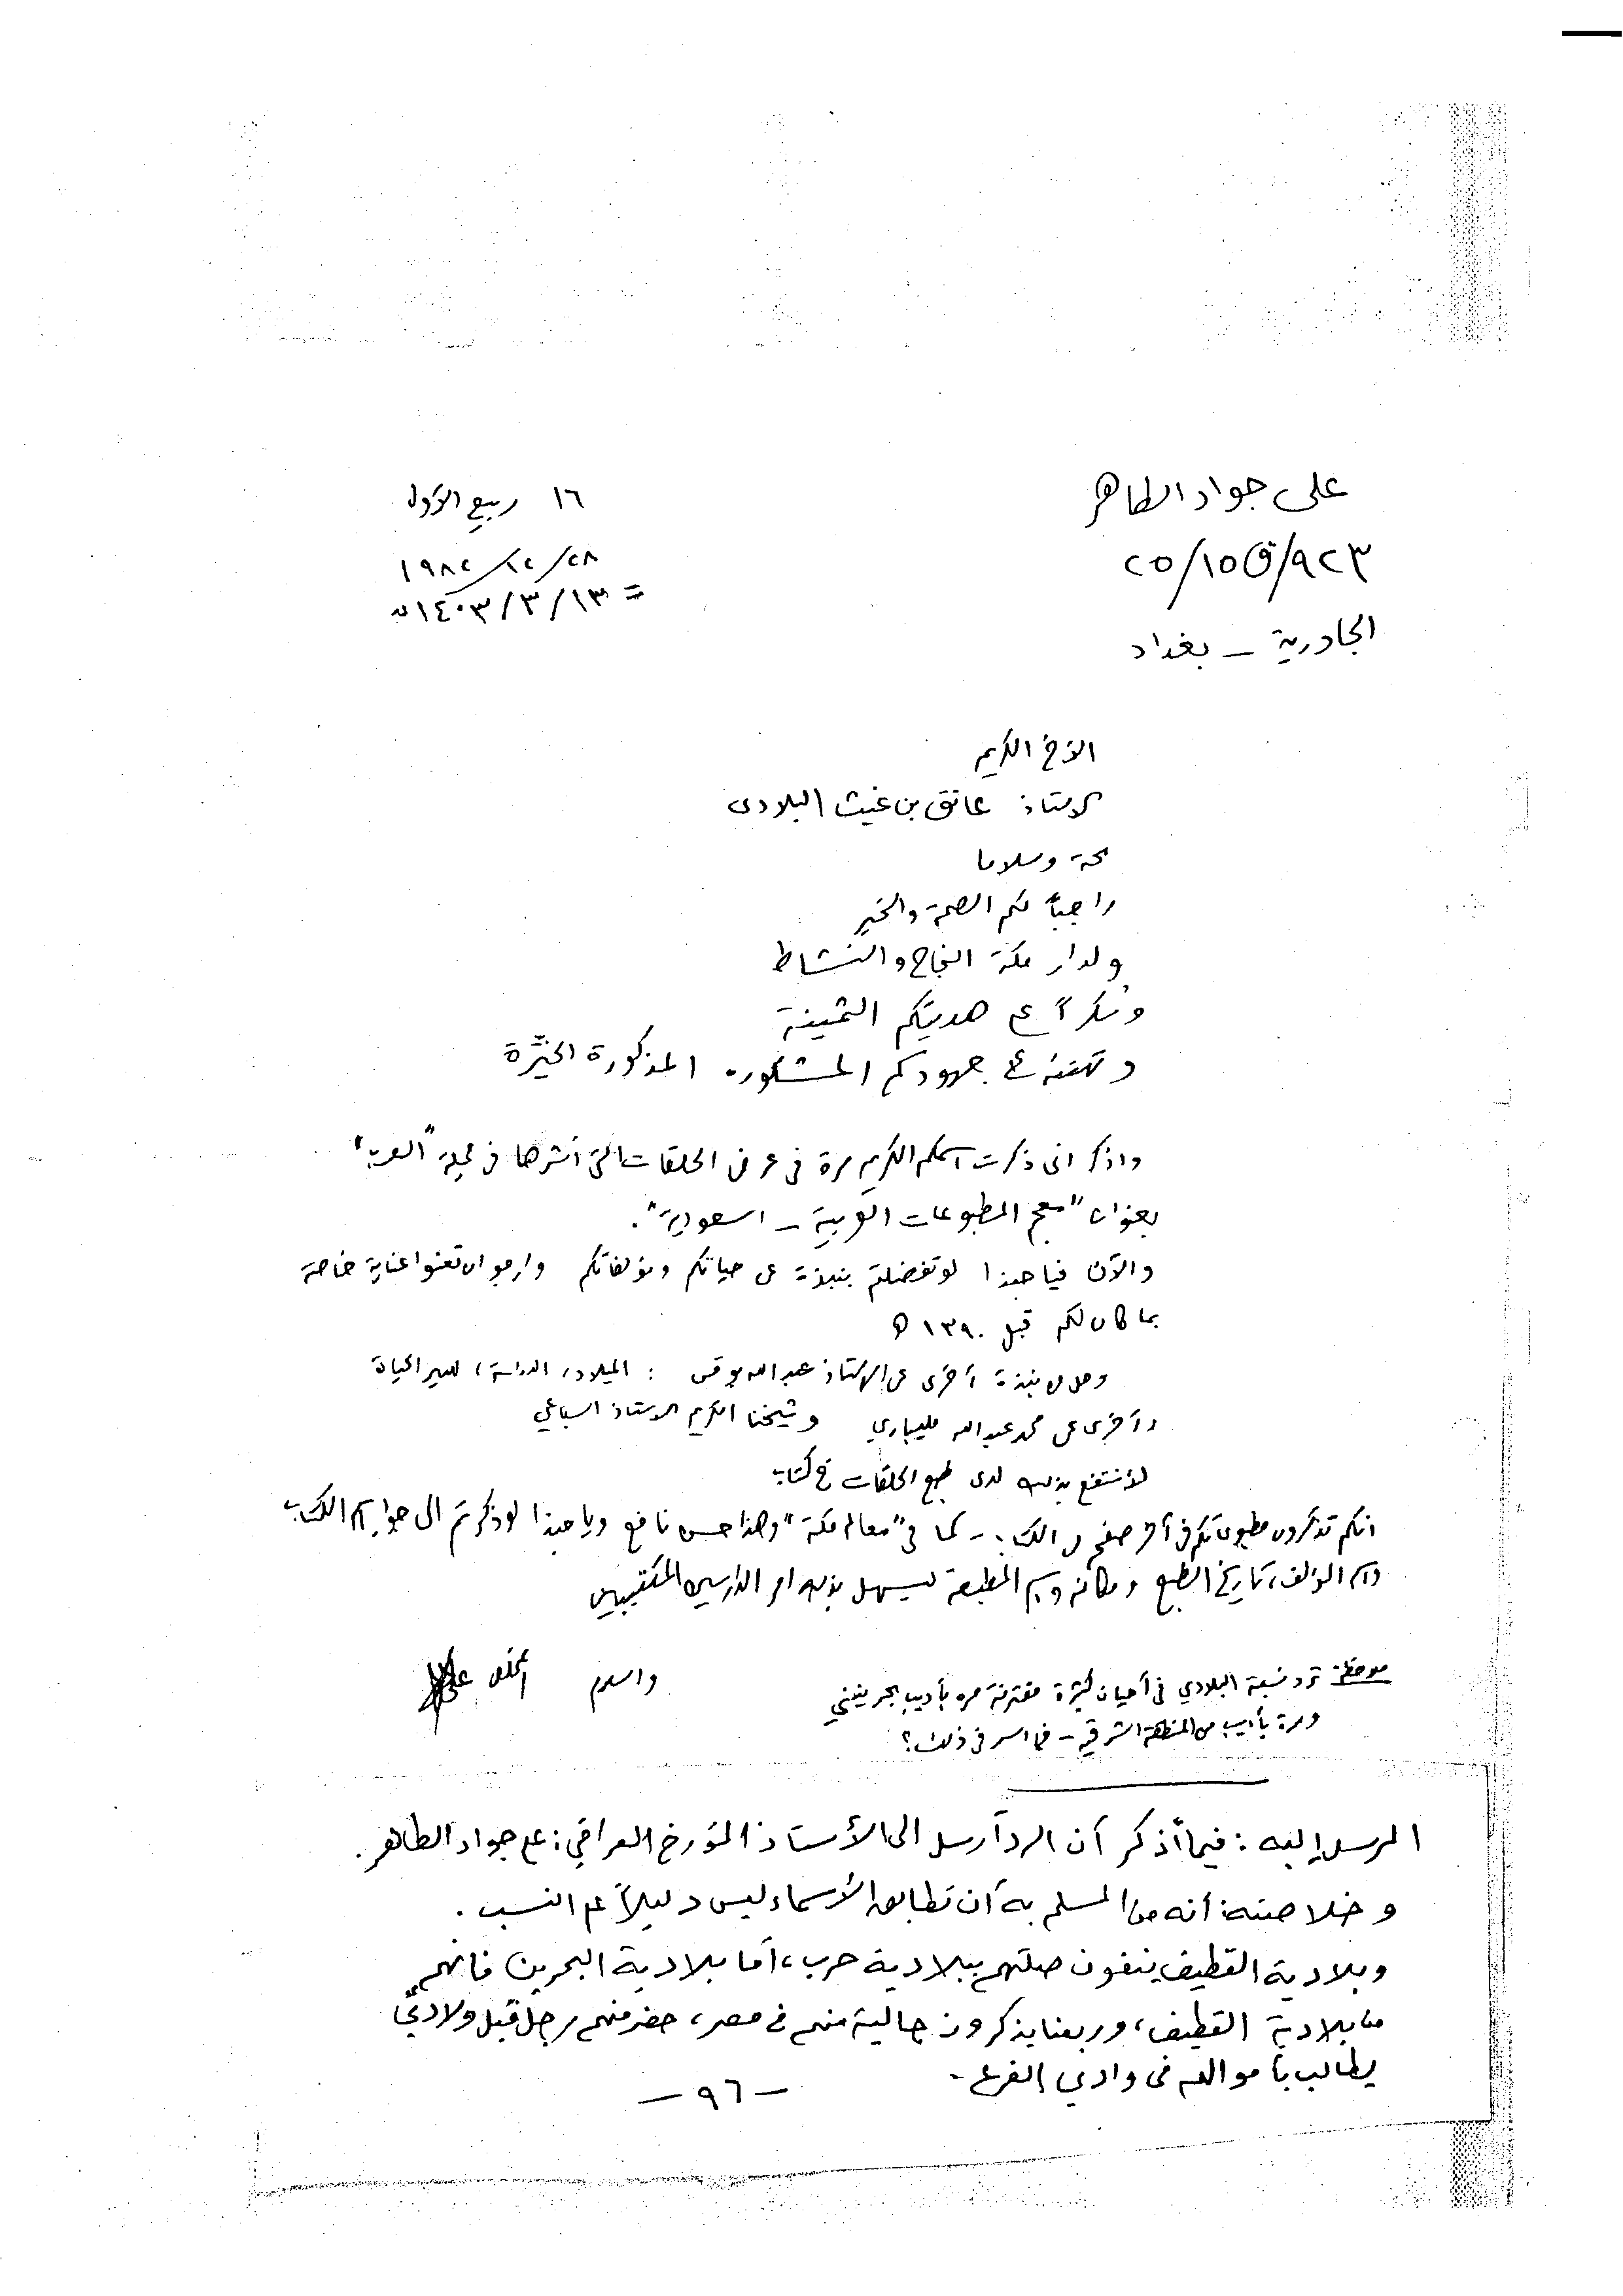 علي جواد الطاهر
١٦ ربيع الأول
٩٢٣/ق١٥/٢٥
١٩٨٢/١٢/٢٨
= ١٤٠٣/٣/١٣ هـ
الجادرية – بغداد
الأخ الكريم
الاستاذ عاتق بن غيث البلادي
وسلاما
راجياً لكم الصحة والخير
ولدار مكة النجاح والنشاط
وشكراً على هديتكم الثمينة
وتهنئة على جهودكم المشكورة المذكورة الخيّرة
واذكر اني ذكرت اسمكم الكريم مرة في عرض الحلقات التي أنشرها في مجلة "العرب"
بعنوان "معجم المطبوعات العربية – السعودية".
والآن فياحبذا لو تفضلتم بنبذة عن حياتكم ومؤلفاتكم وارجو ان تعنوا عناية خاصة
بما كان لكم قبل ١٣٩٠ ه
وهل من نبذة أخرى عن الاستاذ عبدالله بوقس : الميلاد، الدراسة، الحياة
وأخرى عن محمد عبدالله مليباري وشيخنا الكريم الاستاذ السباعي
لأنتفع بذلك لدى طبع الحلقات في كتاب
انكم تذكرون مطبوعاتكم في آخر صفحة من الكتاب – كما في "معالم مكة" وهذا حسن نافع وياحبذا لو ذكرتم الى جوار اسم الكتاب
واسم المؤلف، تاريخ الطبع ومكانه واسم المطبعة ليسهل بذلك امر الدارسين المتعقبين
والسلام المخلص علي
ملاحظة ترد نسبة البلادي في أحيان كثيرة مقترنة مرة بأديب بحريني
ومرة بأديب من المنطقة الشرقية – فما السر في ذلك؟
المرسل إليه : فيما أذكر أن الرد أرسل الى الأستاذ المؤرخ العراقي : علي جواد الطاهر.
وخلاصته: أنه من المسلم به أن تطابق الأسماء ليس دليلاً على النسب .
وبلادية القطيف ينفون صلتهم ببلادية حرب، أما بلادية البحرين فانهم
من بلادية القطيف، وربعنا يذكرون جالية منهم في مصر، حضر منهم رجل قبل ولادتي
يطالب بأمواله في وادي الفرع -
– ٩٦ –